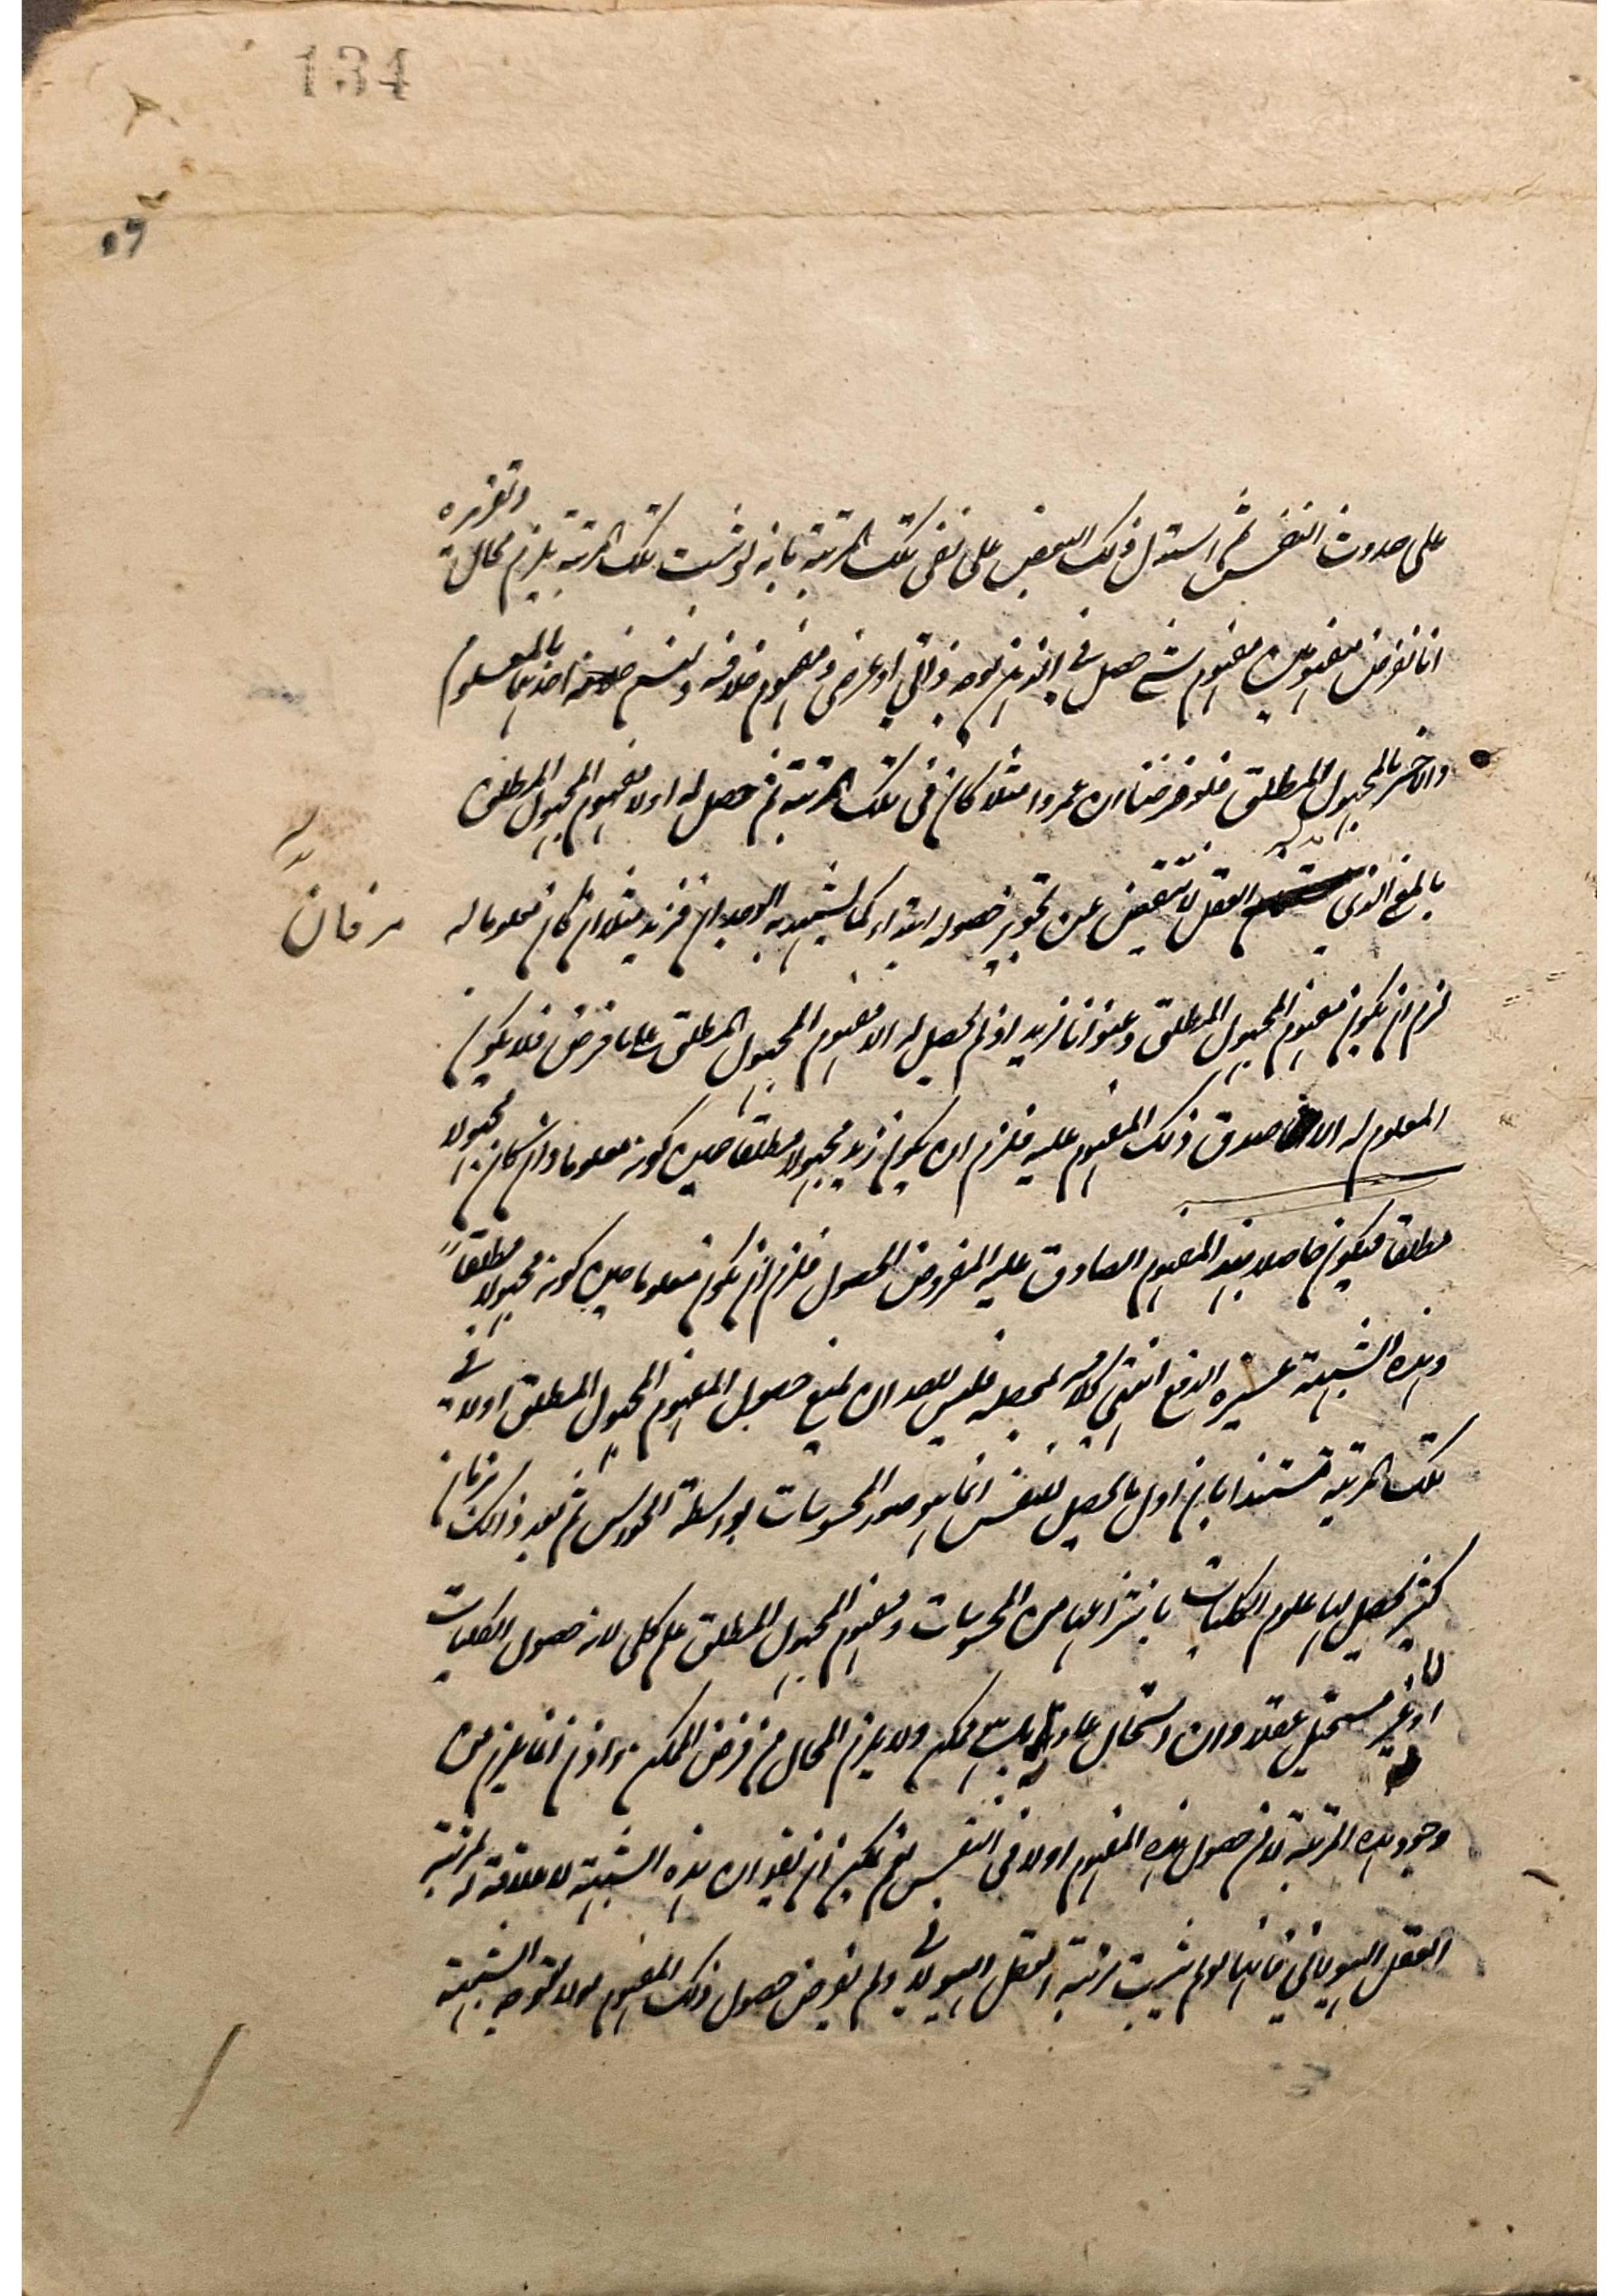 134
وتقريره
على حدوث النفس ثم استدل ذلك البعض على نفي تلك المرتبة بانه لو ثبت تلك المرتبة يلزم محال
انا نفرض مفهومين مفهوم شئ حصل في الذهن بوجه ذاتي او عرضي ومفهوم خلافه ونسم احدهما بالمعلوم
والاخر بالمجهول المطلق فلو فرضنا ان عمروا مثلا كان في تلك المرتبة ثم حصل له اولا مفهوم المجهول المطلق
بالمعنى الذي العقل لا ينقبض عن تجويز حصوله ابتداء كما يشهد به الوجدان فزيد مثلا ان كان معلوما له
لزم ان يكون مفهوم المجهول المطلق وعنوانا لزيد اذ لم يحصل له الا مفهوم المجهول المطلق على ما فرض فلا يكون
المعلوم له الا ما صدق ذلك المفهوم عليه فلزم ان يكون زيد مجهولا مطلقا حين كونه معلوما وان كان مجهولا
مطلقا فيكون حاصلا بهذا المفهوم الصادق عليه المفروض الحصول فلزم ان يكون معلوما حين كونه مجهولا مطلقاً
وهذه الشبهة عسيرة الدفع انتهى كلامه بمحصله فليس لاحد ان يمنع حصول المفهوم المجهول المطلق اولا في
تلك المرتبة مستندا بان اول ما يحصل للنفس انما هو صور المحسوسات بواسطة الحواس ثم بعد ذلك بزمان
كثير يحصل لها علوم الكليات بانتزاعها من المحسوسات ومفهوم المجهول المطلق علم كلي لان حصول الكليات لها
اولا غير مستحيل عقلا وان استحال عادة ممكن ولا يلزم المحال من فرض الممكن واذن انما يلزم من
وجود هذه المرتبة لا من حصول هذا المفهوم اولا في النفس نعم يمكن ان يقو ان هذه الشبهة لا علاقة له لمرتبة
العقل الهيولاني فانها لو لم يثبت مرتبة العقل الهيولاني ولم يفرض حصول ذلك المفهوم اولا لتوجه الشبهة